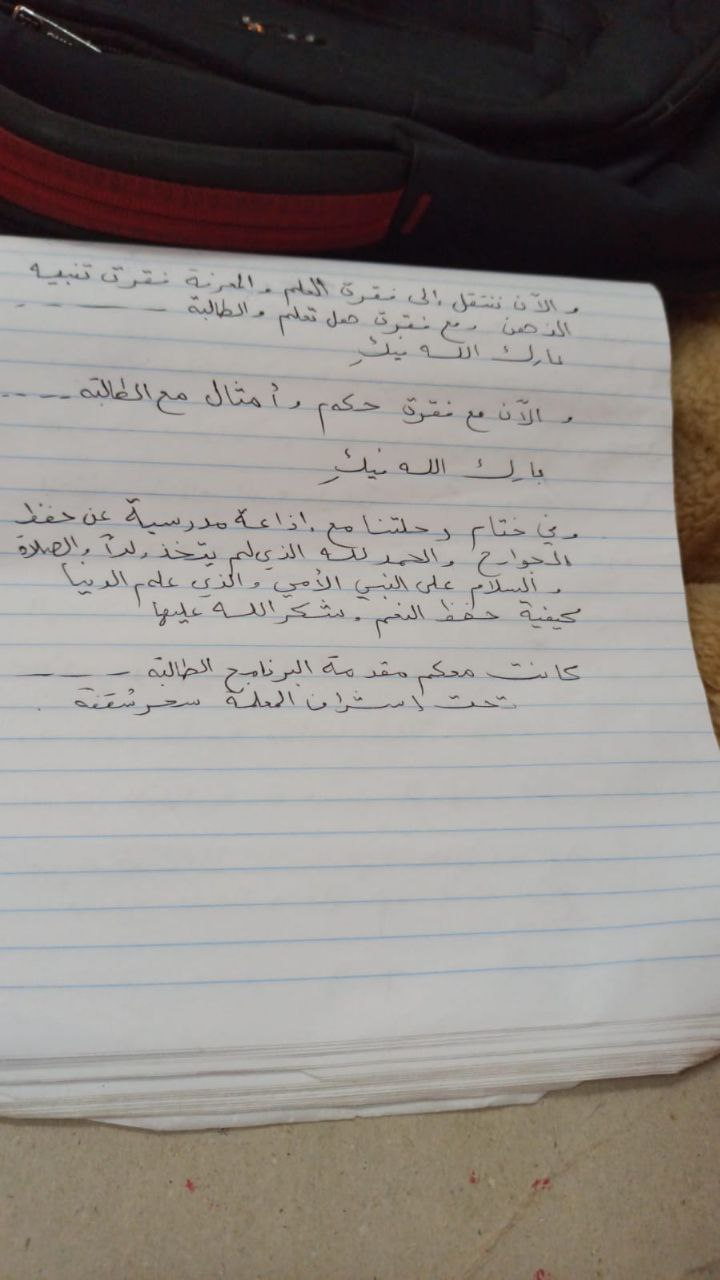 والآن ننتقل إلى فقرة العلم والمعرفة فقرة تنبيه
الذهن ومع فقرة هل تعلم والطالبة _ _ _ _
بارك الله فيكِ
والآن مع فقرة حكم وأمثال مع الطالبة ....
بارك الله فيكِ
وفي ختام رحلتنا مع إذاعة مدرسية عن حفظ
الجوارح والحمد لله الذي لم يتخذ ولداً والصلاة
والسلام على النبي الأمي والذي علم الدنيا
كيفية حفظ النعم وشكر الله عليها
كانت معكم مقدمة البرنامج الطالبة _ _ _ _
تحت إشراف المعلمة سحر شقفة .